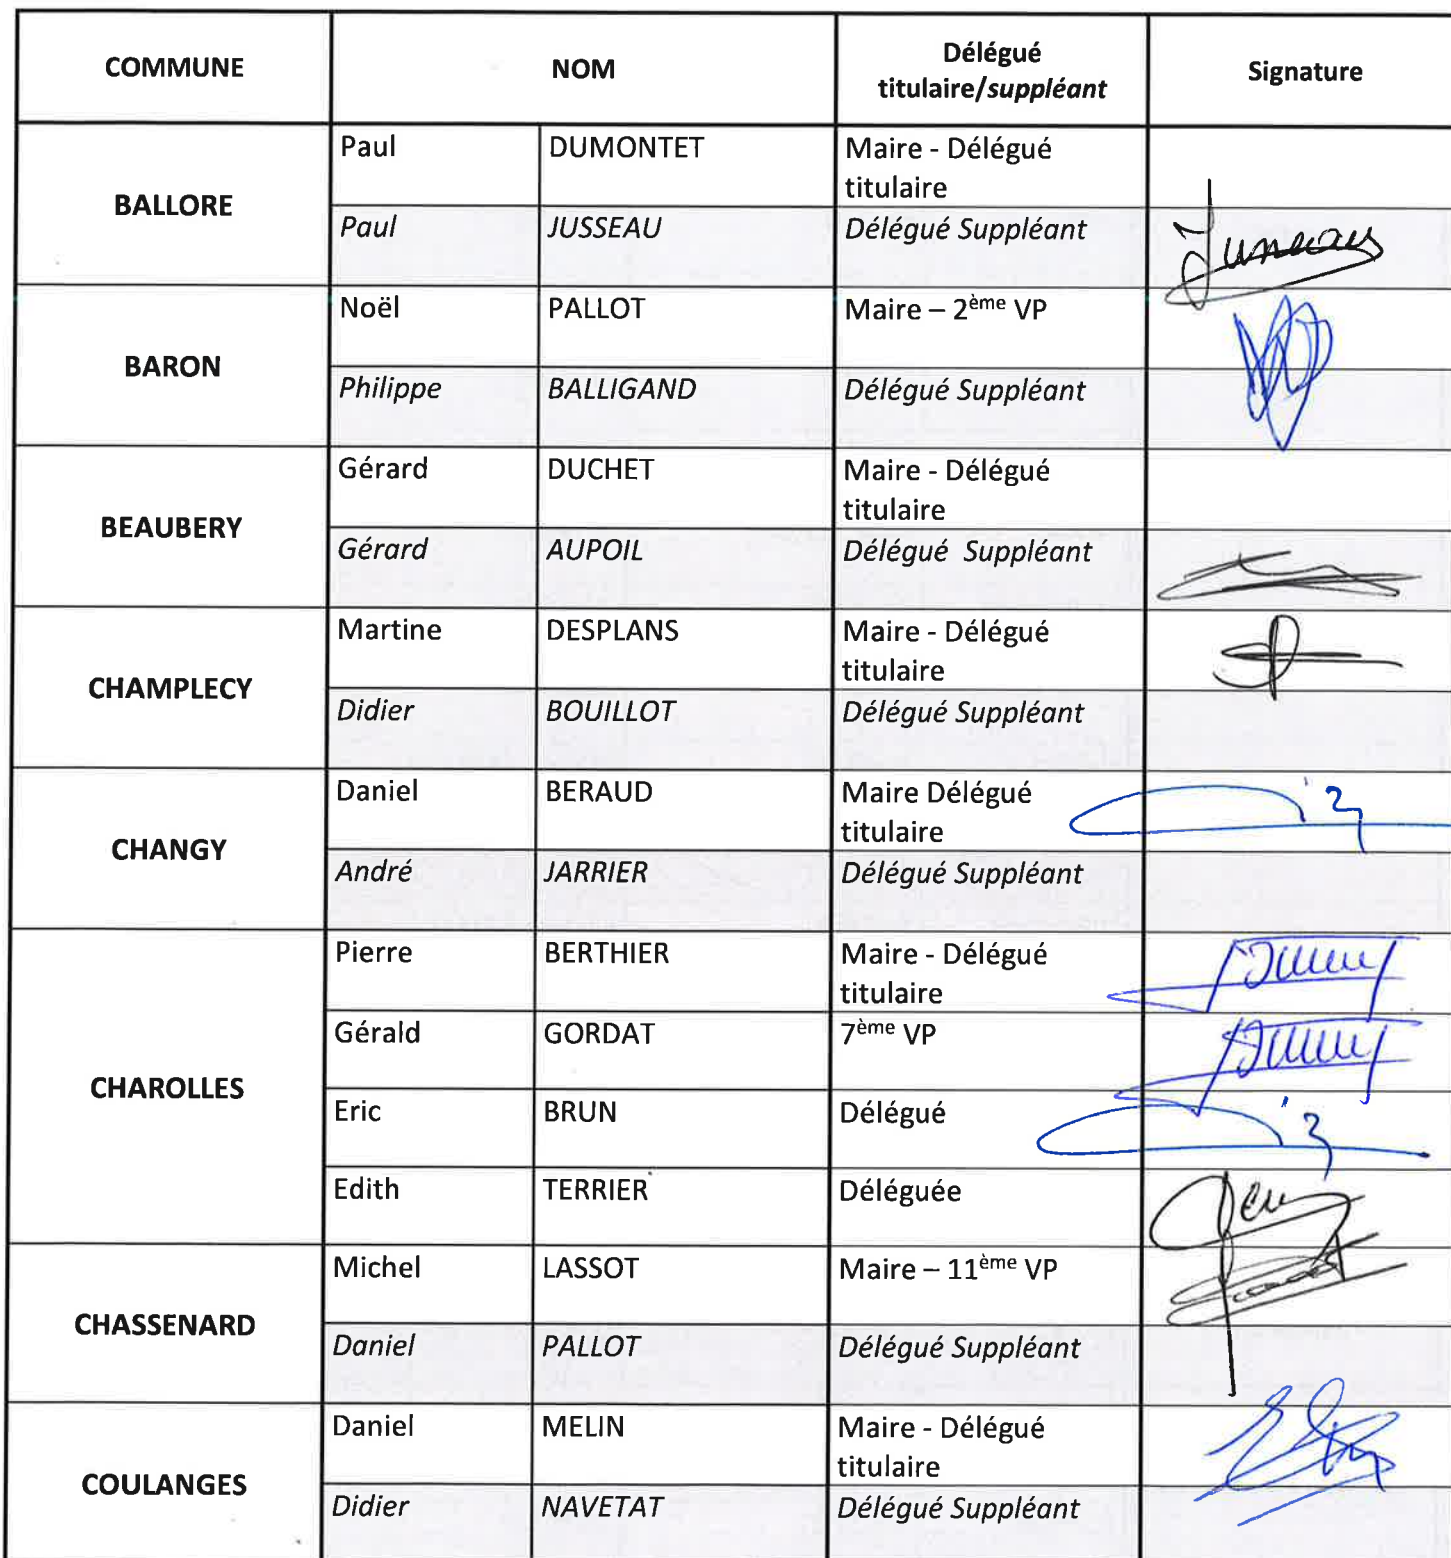 COMMUNE NOM Délégué titulaire/suppléant Signature
BALLORE
Paul DUMONTET Maire - Délégué titulaire
Paul JUSSEAU Délégué Suppléant
BARON
Noël PALLOT Maire – 2ème VP
Philippe BALLIGAND Délégué Suppléant
BEAUBERY
Gérard DUCHET Maire - Délégué titulaire
Gérard AUPOIL Délégué Suppléant
CHAMPLECY
Martine DESPLANS Maire - Délégué titulaire
Didier BOUILLOT Délégué Suppléant
CHANGY
Daniel BERAUD Maire Délégué titulaire
André JARRIER Délégué Suppléant
CHAROLLES
Pierre BERTHIER Maire - Délégué titulaire
Gérald GORDAT 7ème VP
Eric BRUN Délégué
Edith TERRIER Déléguée
CHASSENARD
Michel LASSOT Maire – 11ème VP
Daniel PALLOT Délégué Suppléant
COULANGES
Daniel MELIN Maire - Délégué titulaire
Didier NAVETAT Délégué Suppléant